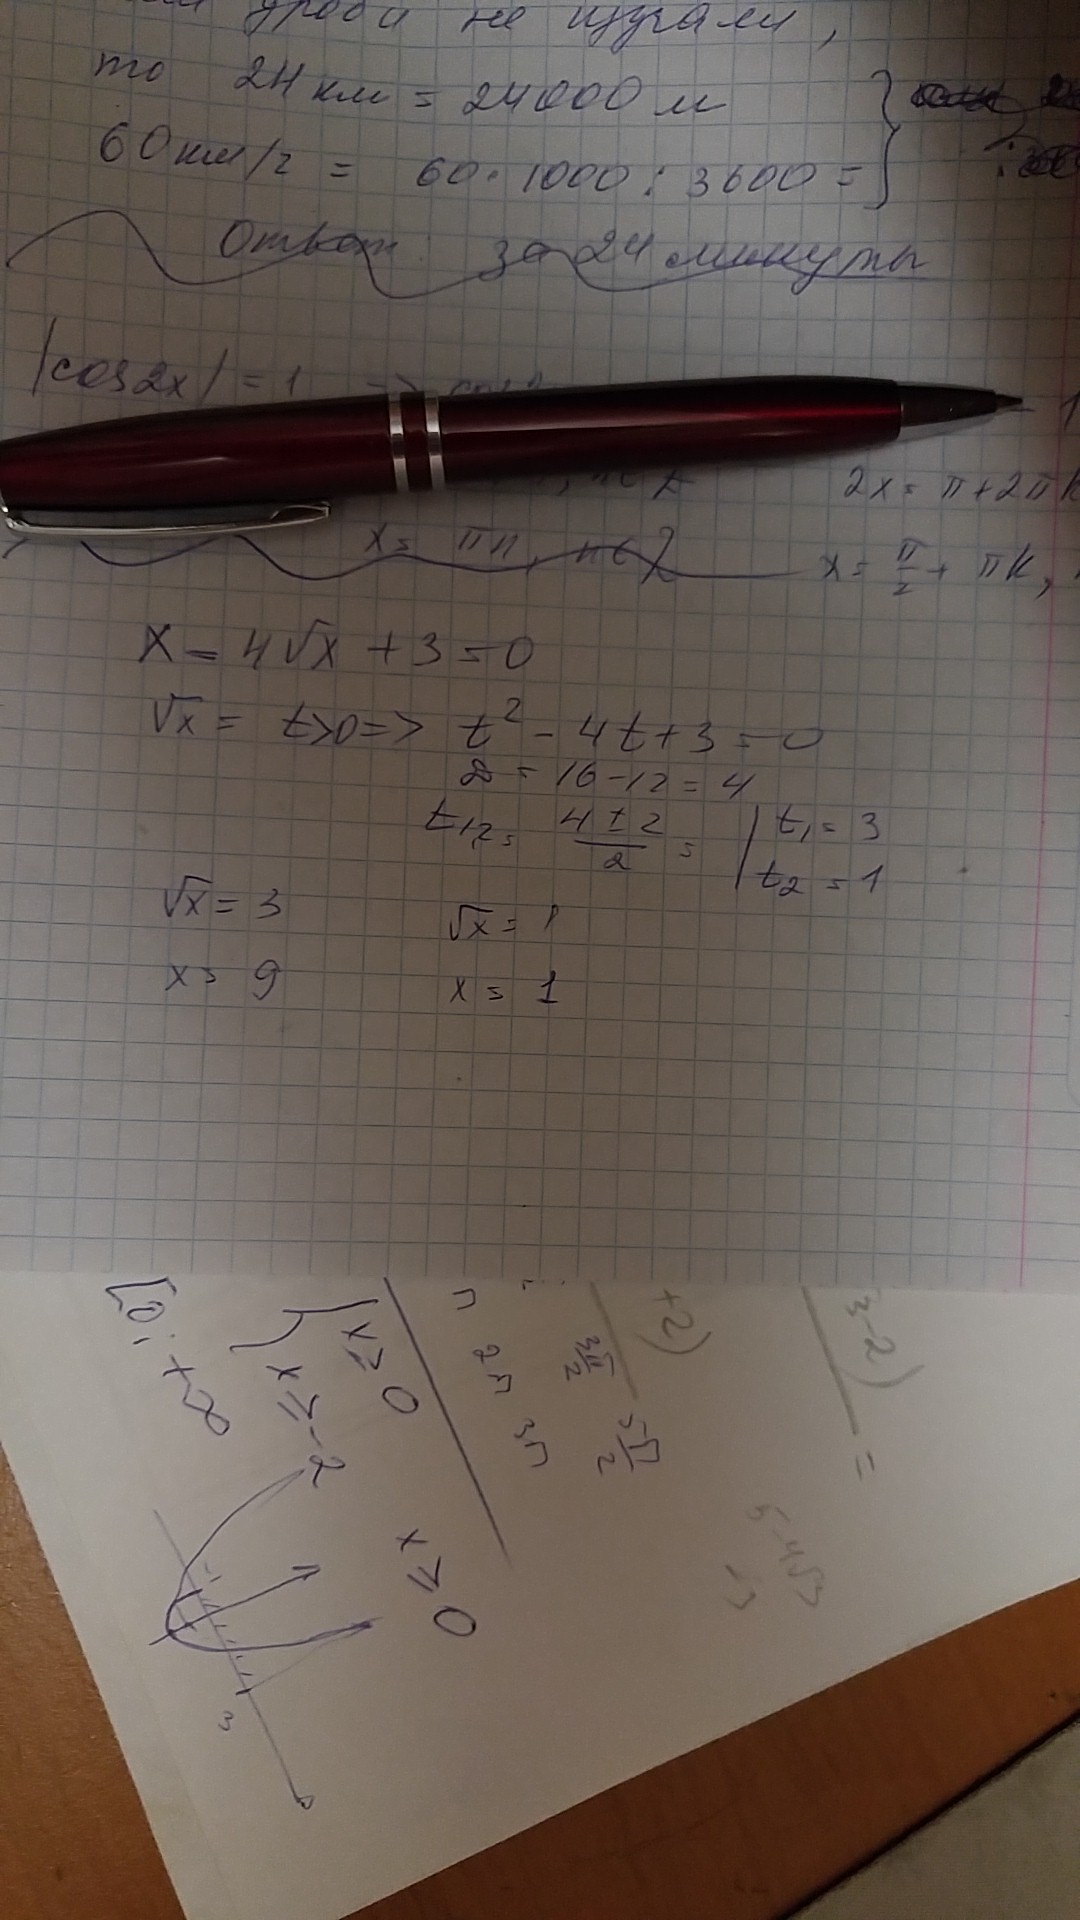 дроби не изучали,
то 24 км = 24000 м
60 км/г = 60 · 1000 : 3600 =
Ответ: за 24 минуты
|cos2x| = 1 →
2x = π + 2πk
x = πn, n ∈ Z x = π/2 + πk,
x - 4√x + 3 = 0
√x = t>0 => t² - 4t + 3 = 0
D = 16 - 12 = 4
t₁,₂ = (4 ± 2)/2 = | t₁ = 3
t₂ = 1
√x = 3 √x = 1
x = 9 x = 1
+2) 3-2) =
3π/2 5π/2
π 2π 3π
x ≥ 0
x ≥ -2
[0; +∞
x ≥ 0
3